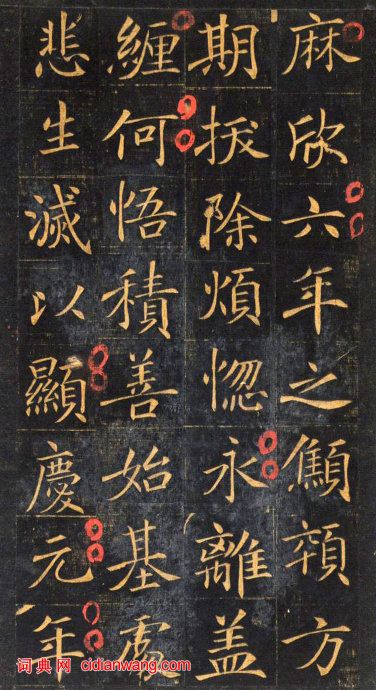 麻欣六年之顦顇方
期拔除煩惚永離盖
纏何悟積善始基處
悲生滅以顯慶元年
词典网 cidianwang.com